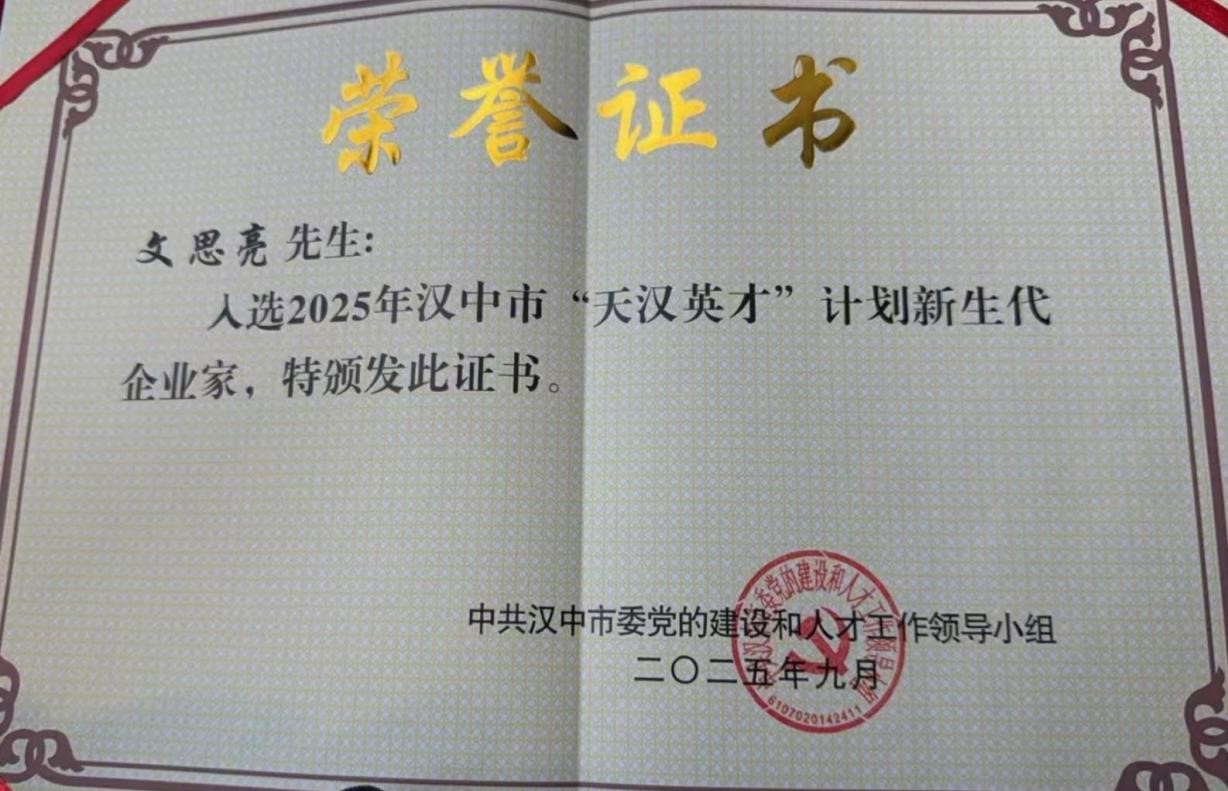 荣誉证书
文思亮 先生：
入选2025年汉中市“天汉英才”计划新生代
企业家，特颁发此证书。
中共汉中市委党的建设和人才工作领导小组
二〇二五年九月
6107020142411